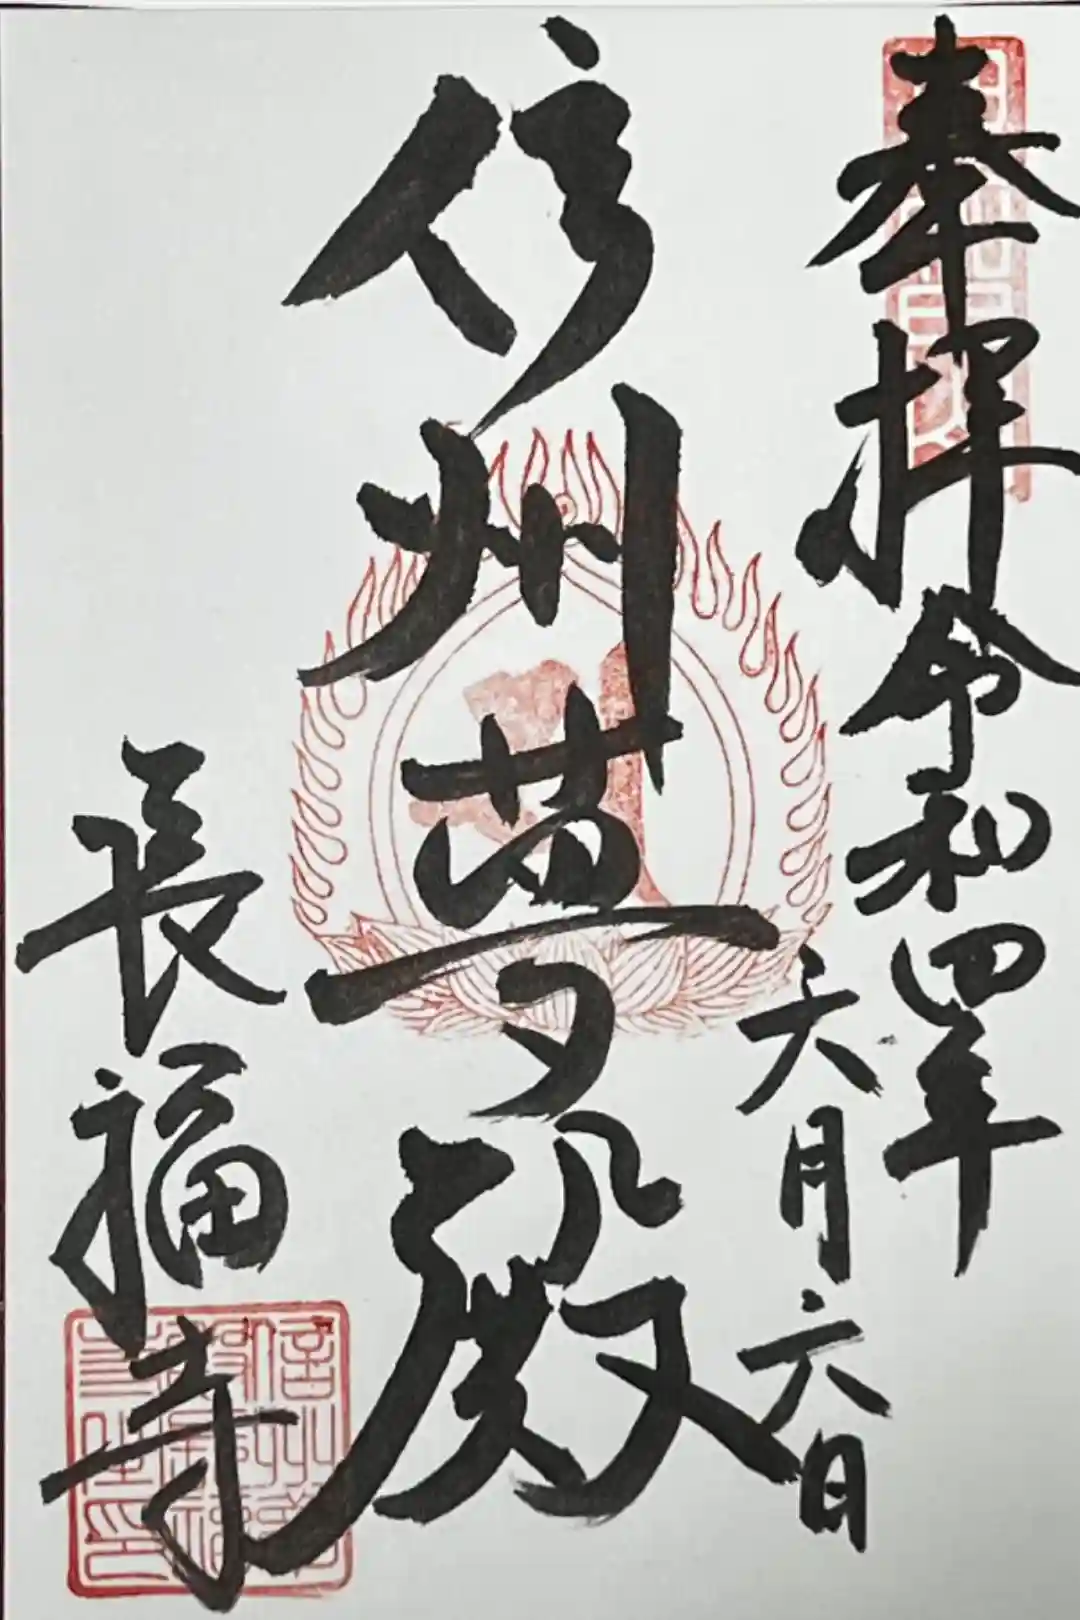 奉拝
令和四年
六月六日
信州夢殿
長福寺